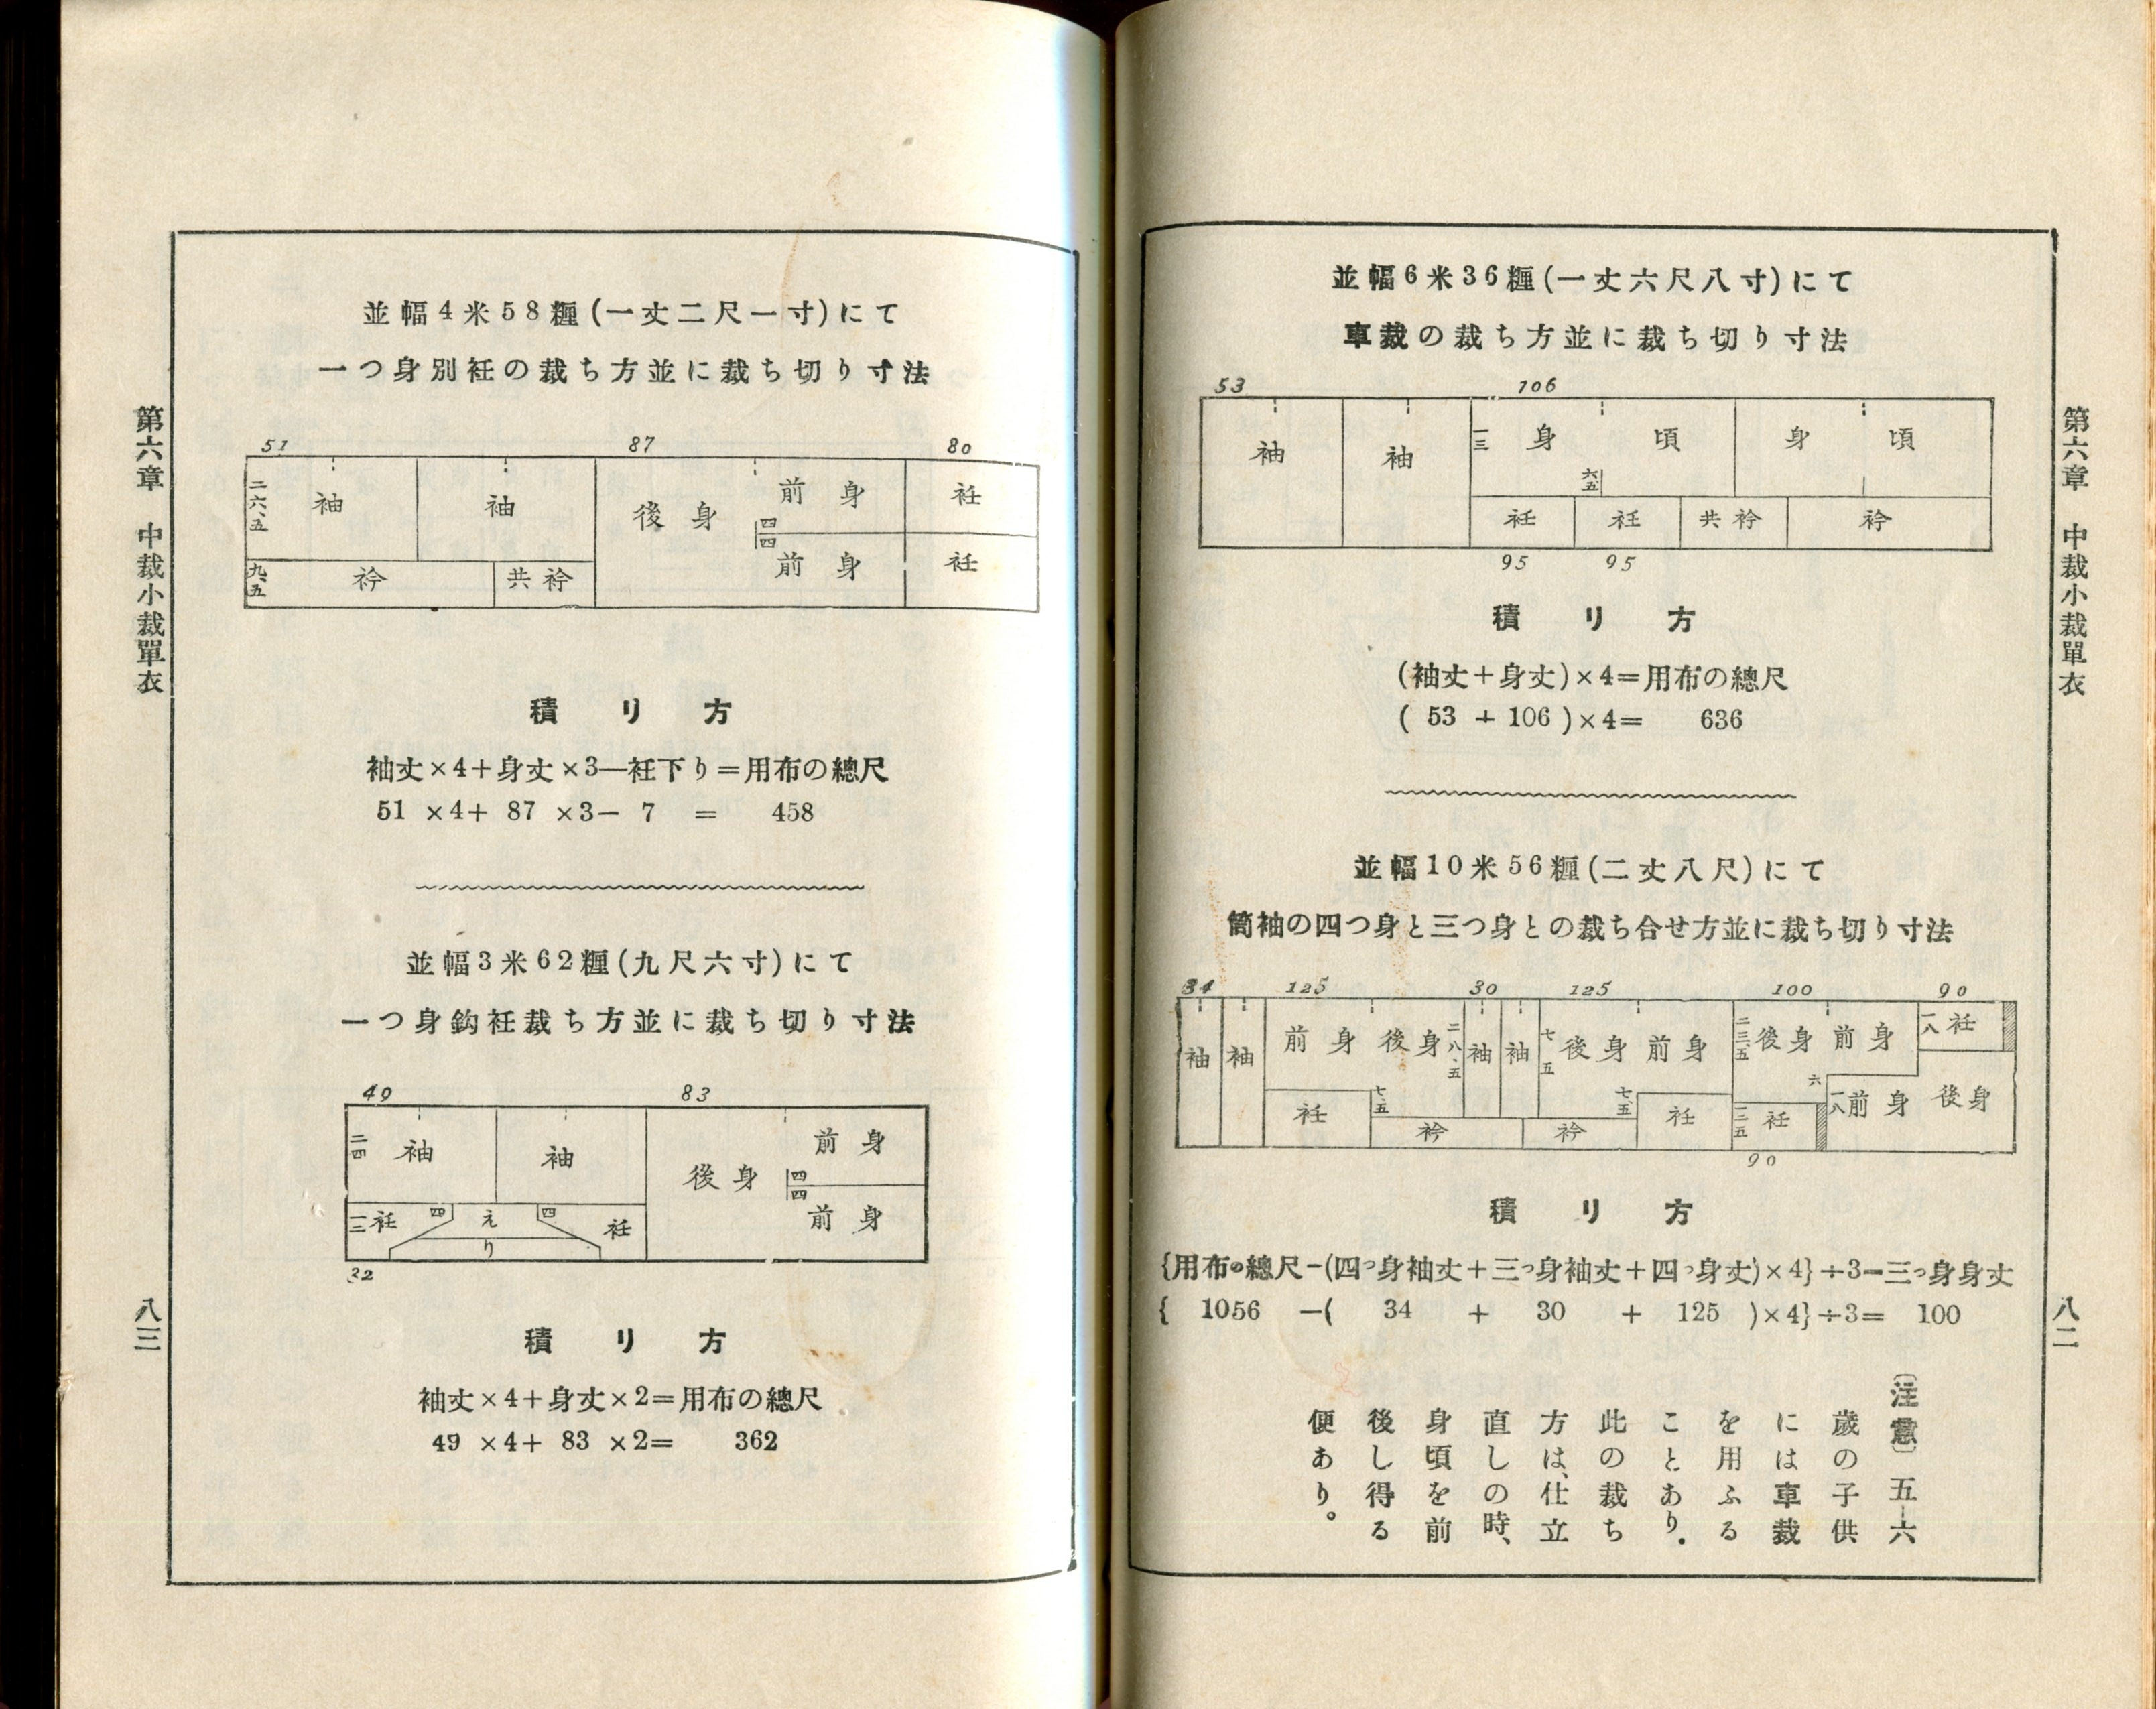 第六章 中裁小裁單衣
八二
並幅6米36糎(一丈六尺八寸)にて
車裁の裁ち方並に裁ち切り寸法
53 106
袖 袖 一三 身頃 身頃
六五
衽 衽 共衿 衿
95 95
積リ方
(袖丈+身丈)×4=用布の總尺
( 53 + 106 )×4= 636
並幅10米56糎(二丈八尺)にて
筒袖の四つ身と三つ身との裁ち合せ方並に裁ち切り寸法
34 125 30 125 100 90
袖 袖 前身 後身 二八、五 袖 袖 七五 後身 前身 二三五 後身 前身 一八 衽
衽 七五 衿 衿 七五 衽 一三五 衽 六 一八 前身 後身
90
積リ方
{用布の總尺-(四つ身袖丈+三つ身袖丈+四つ身丈)×4}÷3=三つ身身丈
{ 1056 -( 34 + 30 + 125 )×4}÷3= 100
〔注意〕 五―六
歲の子供
には車裁
を用ふる
ことあり.
此の裁ち
方は、仕立
直しの時、
身頃を前
後し得る
便あり。
第六章 中裁小裁單衣
八三
並幅4米58糎(一丈二尺一寸)にて
一つ身別衽の裁ち方並に裁ち切り寸法
51 87 80
二六、五 袖 袖 後身 前身 衽
四四
九、五 衿 共衿 前身 衽
積リ方
袖丈×4+身丈×3—衽下り=用布の總尺
51 ×4+ 87 ×3- 7 = 458
並幅3米62糎(九尺六寸)にて
一つ身鈎衽裁ち方並に裁ち切り寸法
49 83
二四 袖 袖 後身 前身
四四
一二 衽 四 え 四 衽 前身
り
32
積リ方
袖丈×4+身丈×2=用布の總尺
49 ×4+ 83 ×2= 362